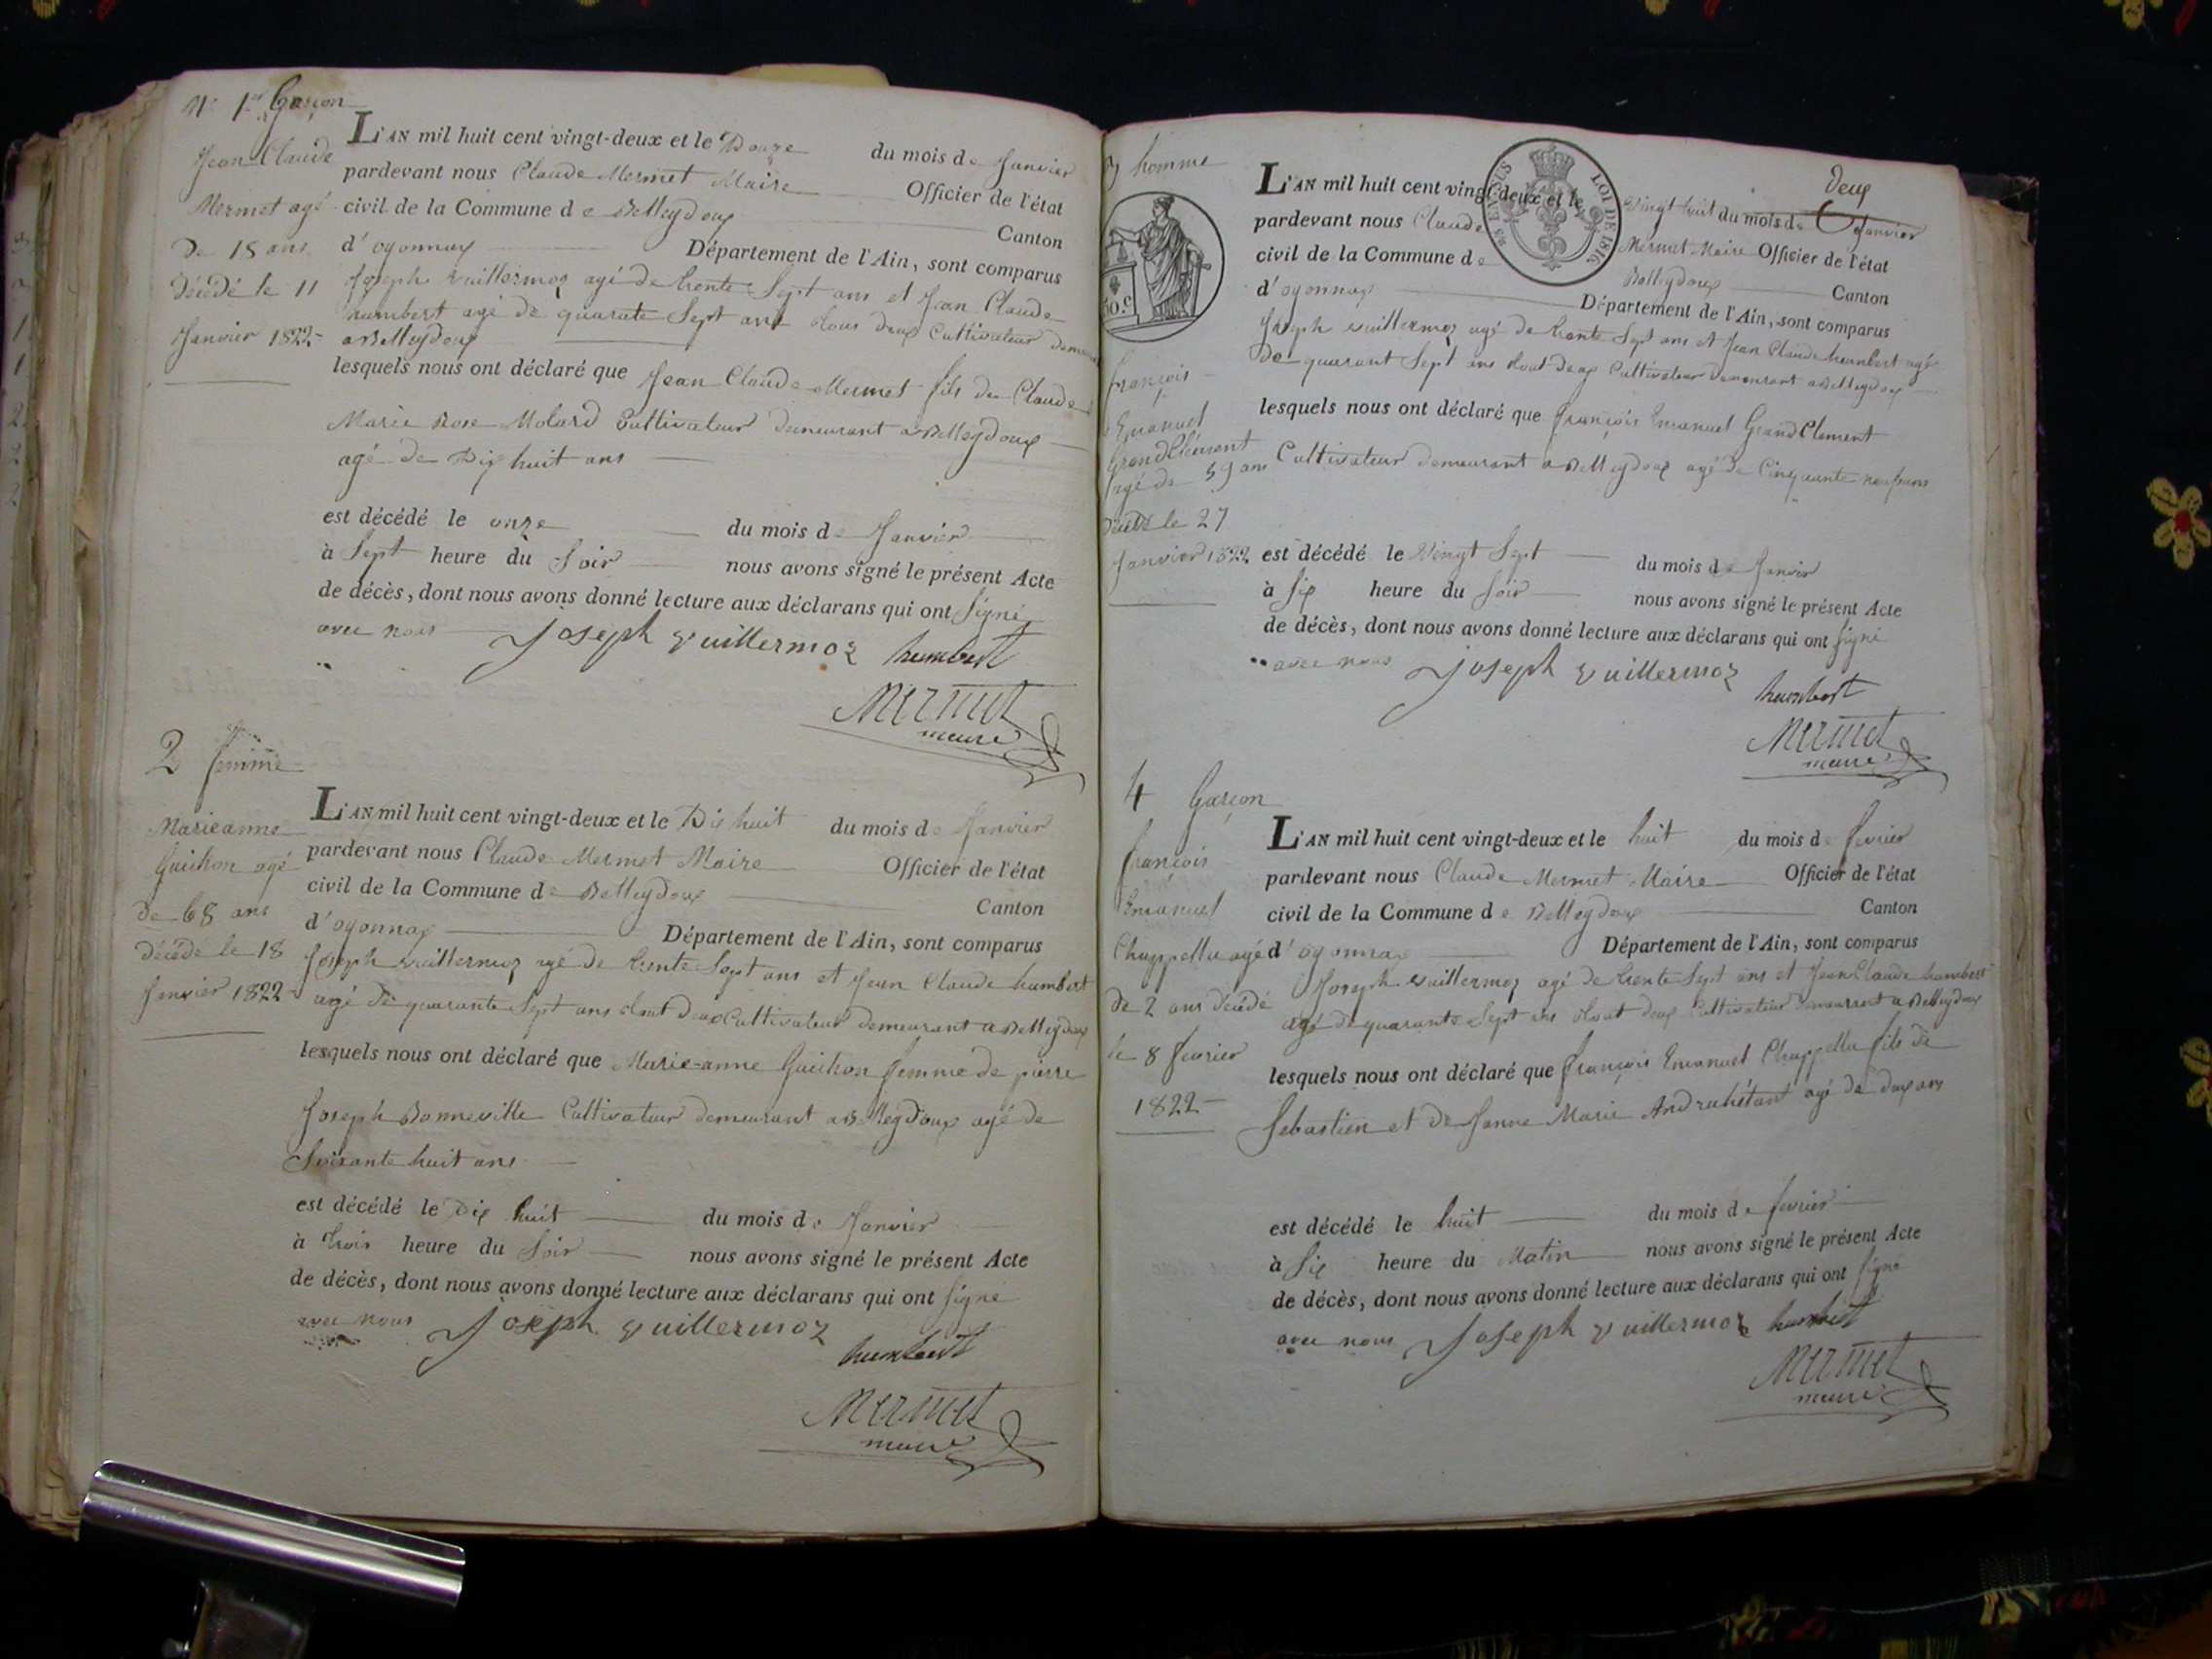 N° 1er Garçon
Jean Claude
Mermet agé
de 18 ans
décédé le 11
Janvier 1822
L'AN mil huit cent vingt-deux et le Douze du mois de Janvier
pardevant nous Claude Mermet Maire Officier de l'état
civil de la Commune de Belleydoux Canton
d'oyonnax Département de l'Ain, sont comparus
Joseph Vuillermoz agé de trente Sept ans et Jean Claude
humbert agé de quarante Sept ans tous deux Cultivateur
a Belleydoux
lesquels nous ont déclaré que Jean Claude Mermet fils de Claude
Marie Rose Molard Cultivateur demeurant a Belleydoux
agé de Dix huit ans
est décédé le onze du mois de Janvier
à Sept heure du Soir nous avons signé le présent Acte
de décès, dont nous avons donné lecture aux déclarans qui ont Signé
avec nous Joseph Vuillermoz humbert
Mermet
maire
2 femme
Marieanne
Guichon agé
de 68 ans
décédé le 18
Janvier 1822
L'AN mil huit cent vingt-deux et le Dix huit du mois de Janvier
pardevant nous Claude Mermet Maire Officier de l'état
civil de la Commune de Belleydoux Canton
d'oyonnax Département de l'Ain, sont comparus
Joseph Vuillermoz agé de trente Sept ans et Jean Claude humbert
agé de quarante Sept ans tout deux Cultivateur demeurant a Belleydoux
lesquels nous ont déclaré que Marie-anne Guichon femme de pierre
Joseph Bonneville Cultivateur demeurant a Belleydoux agé de
Soixante huit ans
est décédé le Dix huit du mois de Janvier
à trois heure du Soir nous avons signé le présent Acte
de décès, dont nous avons donné lecture aux déclarans qui ont Signé
avec nous Joseph Vuillermoz
humbert
Mermet
maire
deux
3 homme
50 c
EN SUS LOI DE 1816
françois
Emanuel
GrandClément
agé de 59 ans
décédé le 27
Janvier 1822
L'AN mil huit cent vingt-deux et le Vingt huit du mois de Janvier
pardevant nous Claude Mermet Maire Officier de l'état
civil de la Commune de Belleydoux Canton
d'oyonnax Département de l'Ain, sont comparus
Joseph Vuillermoz agé de trente Sept ans et Jean Claude humbert agé
de quarant Sept ans tout deux Cultivateur demeurant a Belleydoux
lesquels nous ont déclaré que françois Emanuel GrandClement
Cultivateur demeurant a Belleydoux agé de Cinquante neuf ans
est décédé le Vingt Sept du mois de Janvier
à Six heure du Soir nous avons signé le présent Acte
de décès, dont nous avons donné lecture aux déclarans qui ont Signé
avec nous Joseph Vuillermoz
humbert
Mermet
maire
4 Garçon
françois
Emanuel
Chappellu agé
de 2 ans décédé
le 8 fevrier
1822
L'AN mil huit cent vingt-deux et le huit du mois de fevrier
pardevant nous Claude Mermet Maire Officier de l'état
civil de la Commune de Belleydoux Canton
d'oyonnax Département de l'Ain, sont comparus
Joseph Vuillermoz agé de trente Sept ans et Jean Claude humbert
agé de quarante Sept ans tout deux Cultivateur demeurant a Belleydoux
lesquels nous ont déclaré que françois Emanuel Chappellu fils de
Sebastien et de Jeanne Marie agé de deux ans
est décédé le huit du mois de fevrier
à Six heure du Matin nous avons signé le présent Acte
de décès, dont nous avons donné lecture aux déclarans qui ont Signé
avec nous Joseph Vuillermoz humbert
Mermet
maire